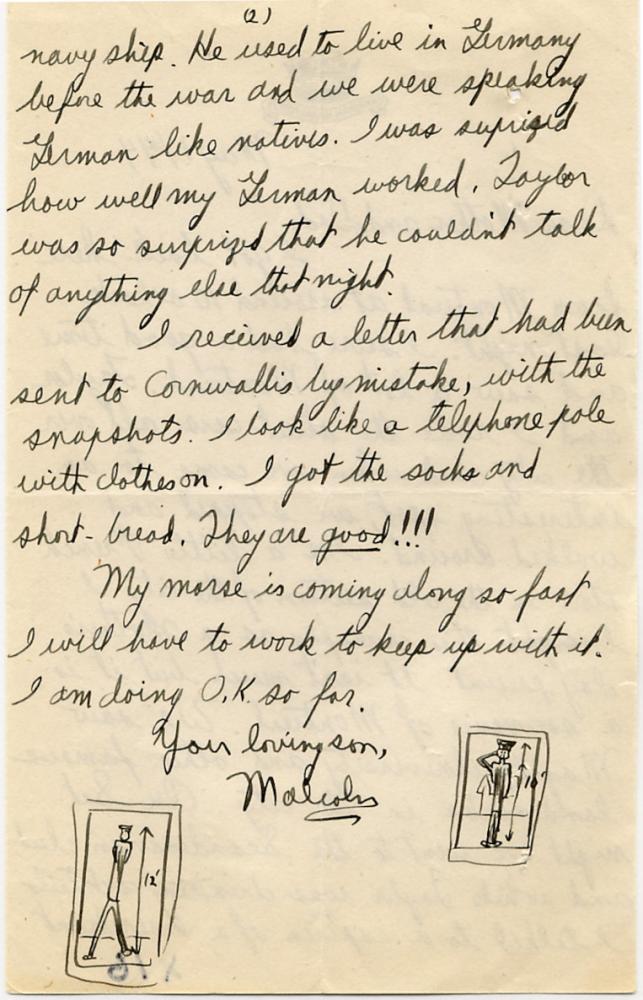 (2)
navy ship. He used to live in Germany
before the war and we were speaking
German like natives. I was suprized
how well my German worked. Taylor
was so surprized that he couldn't talk
of anything else that night.
I received a letter that had been
sent to Cornwallis by mistake, with the
snapshots. I look like a telephone pole
with clothes on. I got the socks and
short-bread. They are good!!!
My morse is coming along so fast
I will have to work to keep up with it.
I am doing O.K. so far.
Your loving son,
Malcolm
10'
12'